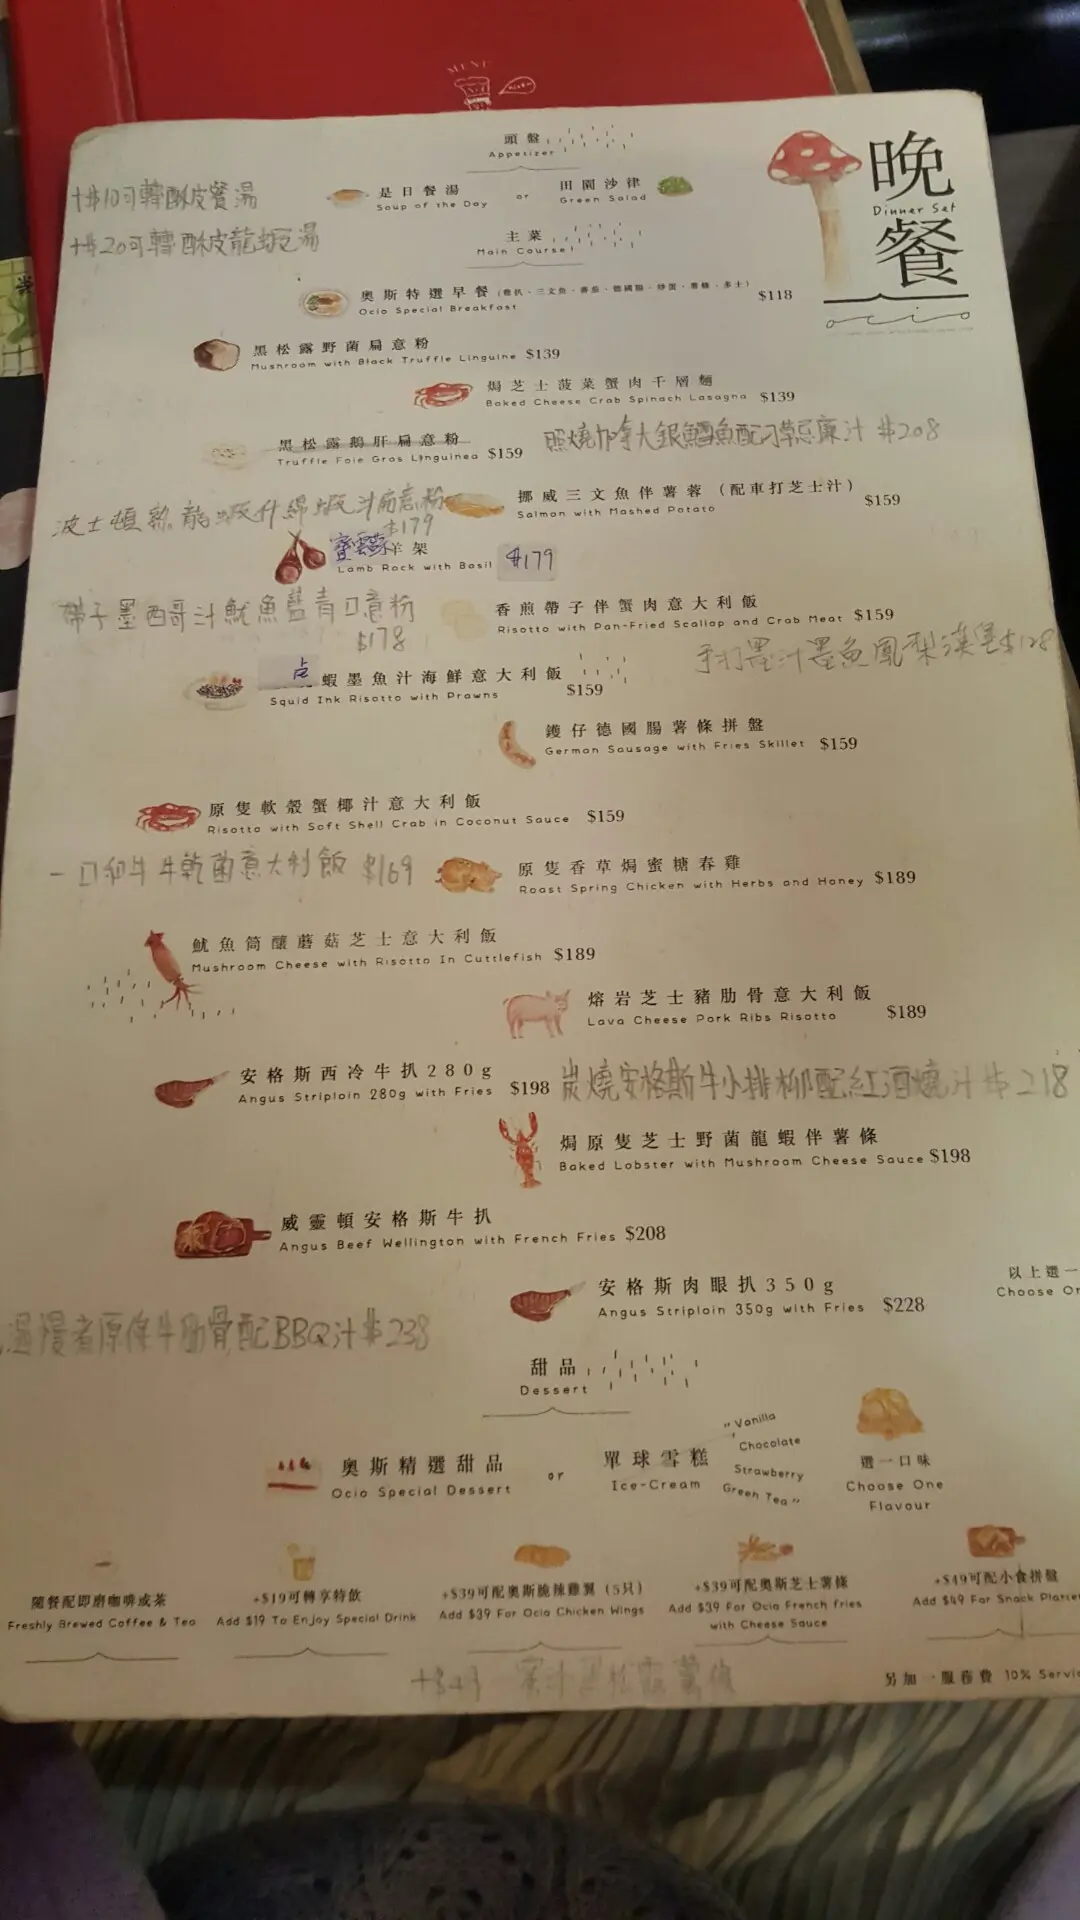 MENU
頭盤
Appetizer
晚餐
Dinner Set
ocio
+$10可轉酥皮餐湯
+$20可轉酥皮龍蝦湯
是日餐湯
Soup of the Day
or
田園沙律
Green Salad
主菜
Main Course
奧斯特選早餐 (雞扒、三文魚、蕃茄、德國腸、炒蛋、薯條、多士) $118
Ocio Special Breakfast
黑松露野菌扁意粉
Mushroom with Black Truffle Linguine $139
焗芝士菠菜蟹肉千層麵
Baked Cheese Crab Spinach Lasagna $139
黑松露鵝肝扁意粉
Truffle Foie Gras Linguinea $159
照燒加拿大銀鱈魚配刁草忌廉汁 $208
挪威三文魚伴薯蓉 (配車打芝士汁)
Salmon with Mashed Potato $159
波士頓 龍蝦 蝦汁扁意粉
$179
羊架
Lamb Rack with Basil $179
帶子墨西哥汁魷魚藍青口意粉
$178
香煎帶子伴蟹肉意大利飯
Risotto with Pan-Fried Scallop and Crab Meat $159
手打墨汁墨魚鳳梨漢堡$128
蝦墨魚汁海鮮意大利飯
Squid Ink Risotto with Prawns $159
鑊仔德國腸薯條拼盤
German Sausage with Fries Skillet $159
原隻軟殼蟹椰汁意大利飯
Risotto with Soft Shell Crab in Coconut Sauce $159
一口和牛牛乾菌意大利飯 $169
原隻香草焗蜜糖春雞
Roast Spring Chicken with Herbs and Honey $189
魷魚筒釀蘑菇芝士意大利飯
Mushroom Cheese with Risotto In Cuttlefish $189
熔岩芝士豬肋骨意大利飯
Lava Cheese Pork Ribs Risotto $189
安格斯西冷牛扒280g
Angus Striploin 280g with Fries $198
炭燒安格斯牛小排柳配紅酒燒汁 $218
焗原隻芝士野菌龍蝦伴薯條
Baked Lobster with Mushroom Cheese Sauce $198
威靈頓安格斯牛扒
Angus Beef Wellington with French Fries $208
安格斯肉眼扒350g
Angus Striploin 350g with Fries $228
以上選一
Choose On
慢煮原條牛肋骨配BBQ汁$238
甜品
Dessert
奧斯精選甜品
Ocio Special Dessert
or
單球雪糕
Ice-Cream
"Vanilla
Chocolate
Strawberry
Green Tea"
選一口味
Choose One
Flavour
隨餐配即磨咖啡或茶
Freshly Brewed Coffee & Tea
+$19可轉享特飲
Add $19 To Enjoy Special Drink
+$39可配奧斯脆辣雞翼 (5只)
Add $39 For Ocio Chicken Wings
+$39可配奧斯芝士薯條
Add $39 For Ocio French fries
with Cheese Sauce
+$49可配小食拼盤
Add $49 For Snack Platter
另加一服務費 10% Servi